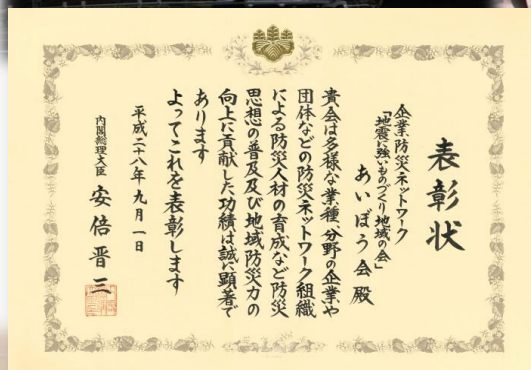 表彰状
企業防災ネットワーク
「地震に強いものづくり地域の会」
あいぼう会殿
貴会は多様な業種、分野の企業や
団体などの防災ネットワーク組織
による防災人材の育成など防災
思想の普及及び地域防災力の
向上に貢献した功績は誠に顕著で
あります
よってこれを表彰します
平成二十八年九月一日
内閣総理大臣 安倍晋三